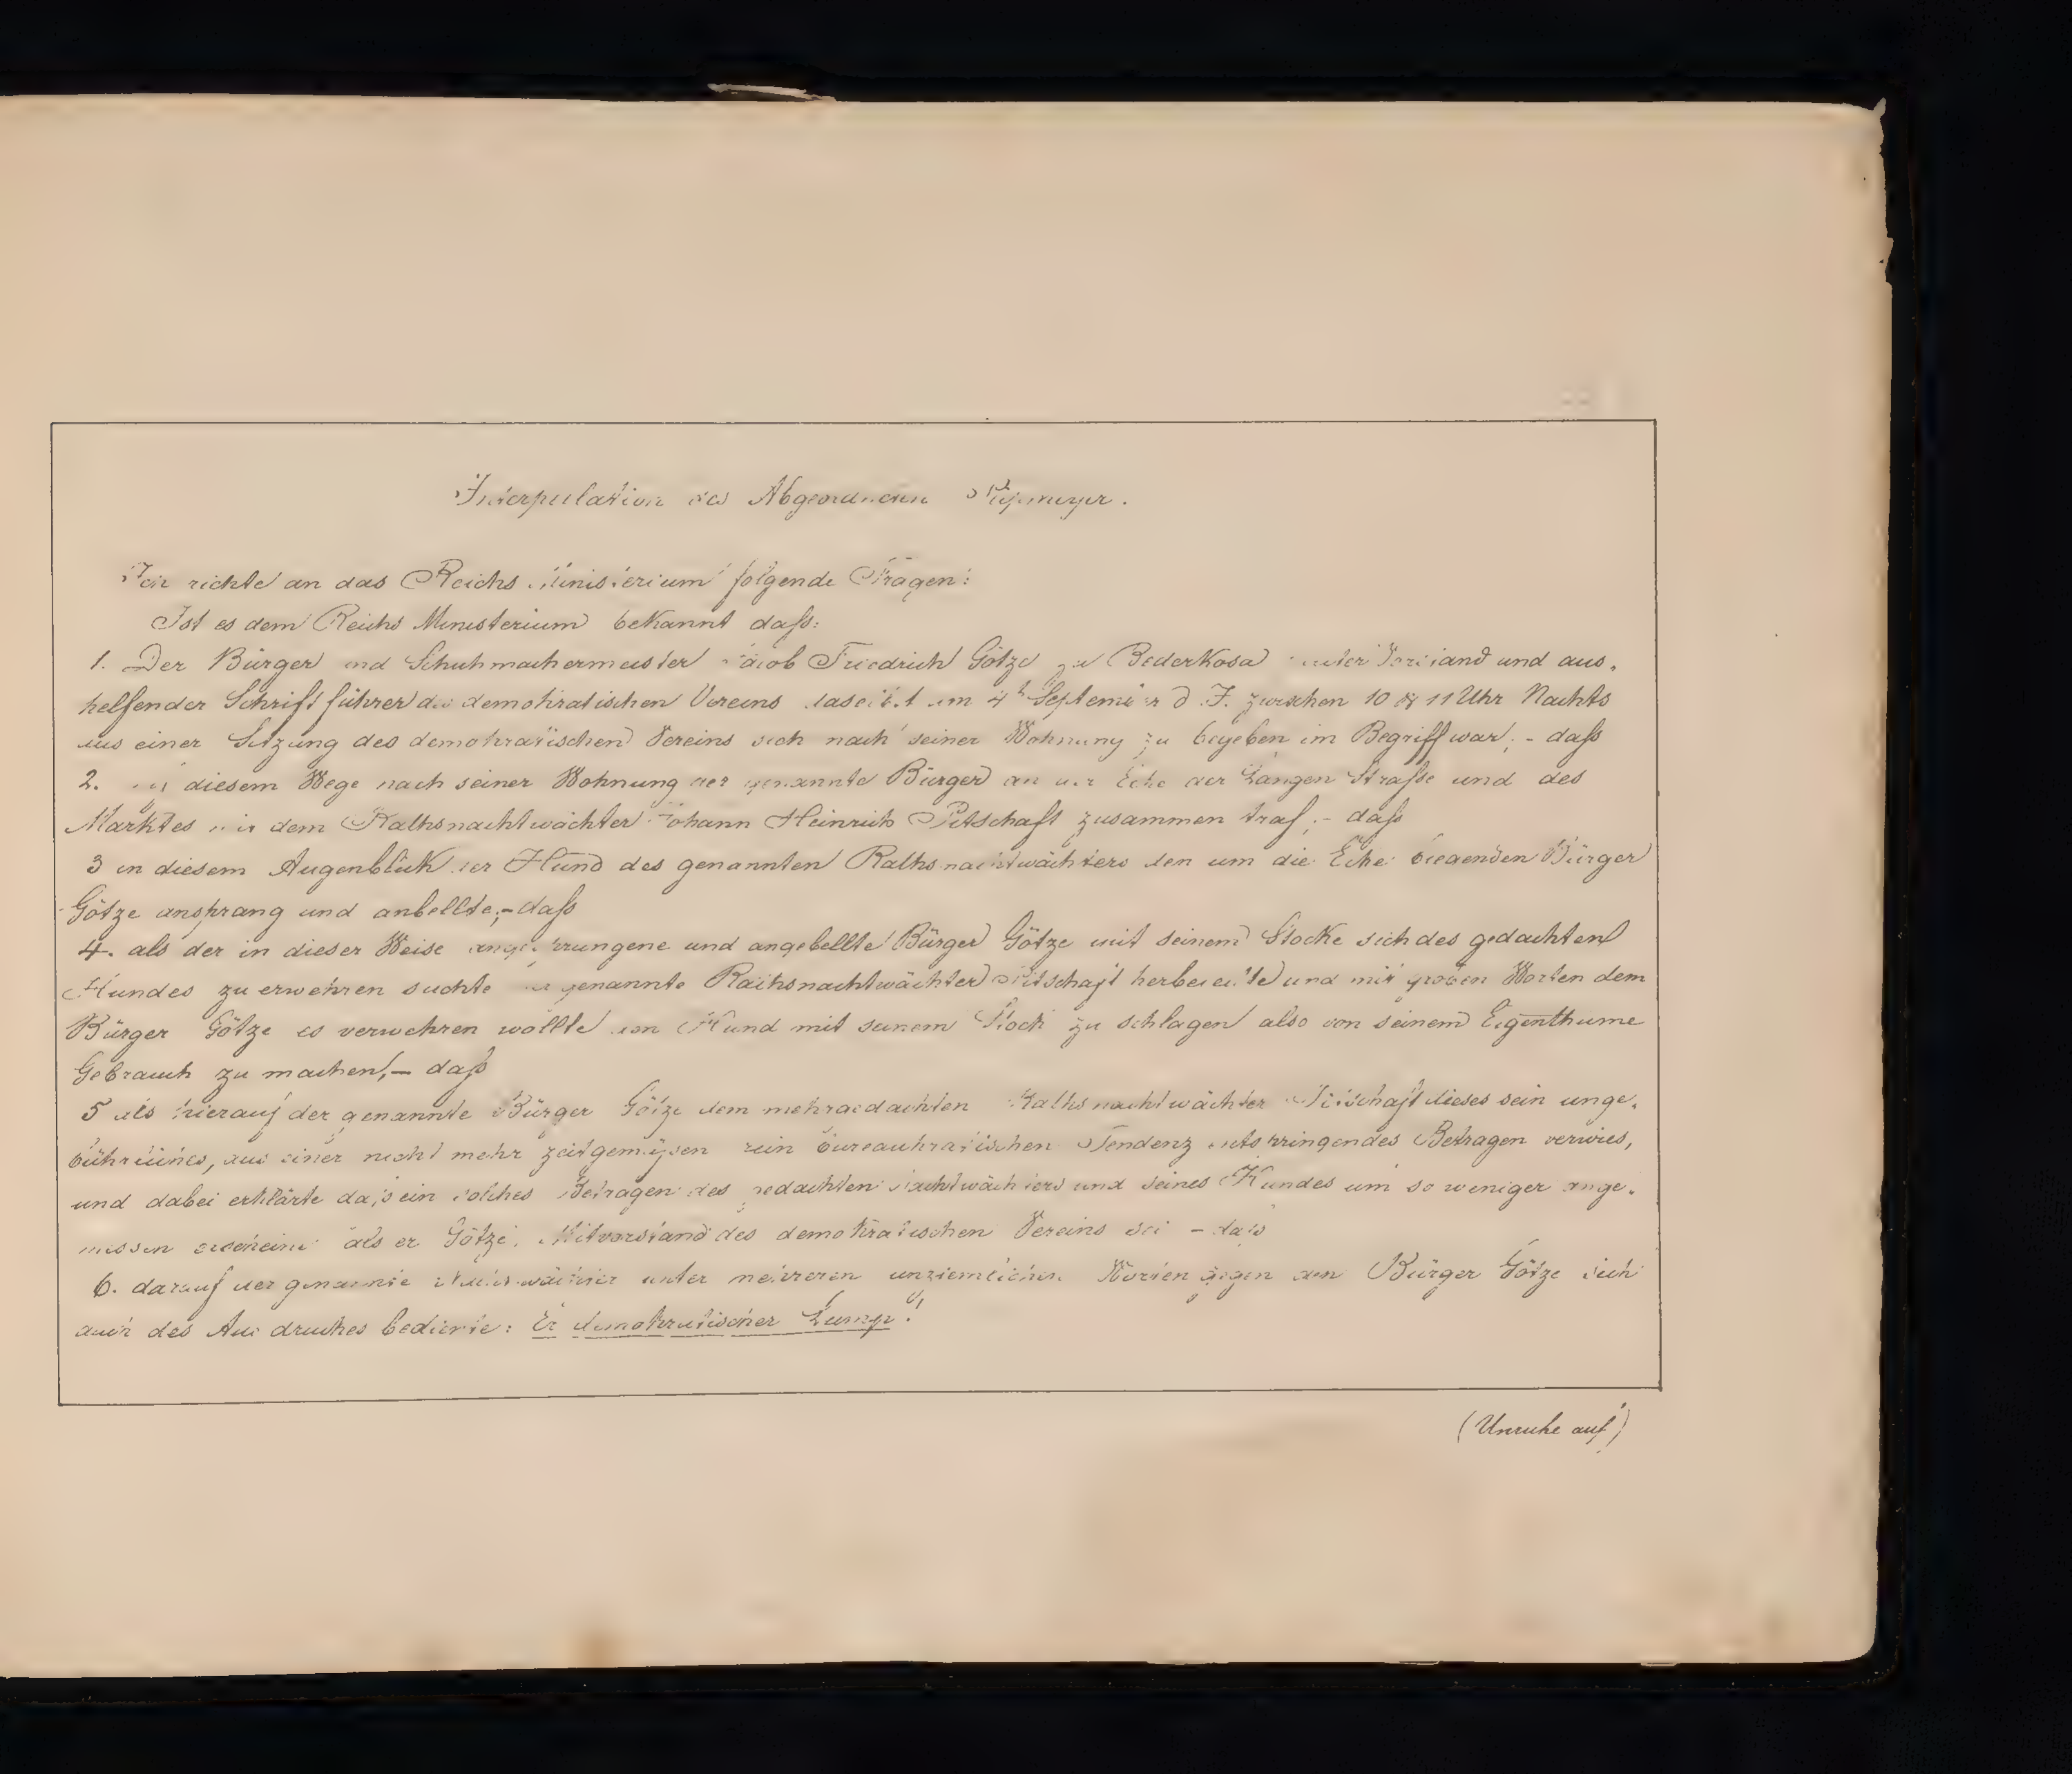 Interpellation des Abgeordneten Piepmeyer.
Ich richte an das Reichs Ministerium folgende Fragen:
Ist es dem Reichs Ministerium bekannt daſs:
1. Der Bürger und Schuhmachermeister Jacob Friedrich Götze zu Bederkosa Vorstand und aus-
helfender Schriftführer des demokratischen Vereins daselbst am 4ᵗ September d. J. zwischen 10 & 11 Uhr Nachts
aus einer Sitzung des demokratischen Vereins sich nach seiner Wohnung zu begeben im Begriff war; - daſs
2. auf diesem Wege nach seiner Wohnung der genannte Bürger an der Ecke der Langen Straſse und des
Marktes mit dem Rathsnachtwächter Johann Heinrich Pitschaft zusammen traf; - daſs
3 in diesem Augenblick der Hund des genannten Rathsnachtwächters den um die Ecke biegenden Bürger
Götze ansprang und anbellte; - daſs
4. als der in dieser Weise angesprungene und angebellte Bürger Götze mit seinem Stocke sich des gedachten
Hundes zu erwehren suchte der genannte Rathsnachtwächter Pitschaft herbeieilte und mit groben Worten dem
Bürger Götze es verwehren wollte den Hund mit seinem Stock zu schlagen also von seinem Eigenthume
Gebrauch zu machen, - daſs
5 als hierauf der genannte Bürger Götze dem mehrgedachten Rathsnachtwächter Pitschaft dieses sein unge-
bührliches, aus einer nicht mehr zeitgemäſsen rein bureaukratischen Tendenz entspringendes Betragen verwies,
und dabei erklärte daſs ein solches Betragen des gedachten Nachtwächters und seines Hundes um so weniger ange-
messen erscheine als er Götze, Mitvorstand des demokratischen Vereins sei - daſs
6. darauf der genannte Nachtwächter unter mehreren unziemlichen Worten gegen den Bürger Götze sich
auch des Ausdruckes bediente: Er demokratischer Lump"!
(Unruhe auf)